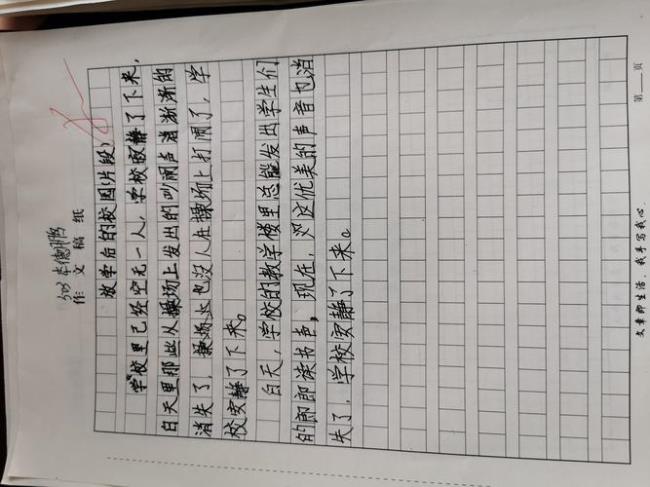 李德鹏
作文稿纸
放学后的校园(片段)
学校里已经空无一人,学校寂静了下来,
白天里那些从操场上发出的吵闹声消渐渐的
消失了,操场上也没人在操场上打闹了,学
校安静了下来。
白天,学校的教学楼里总能发出学生们
的郎郎读书声,现在,这优美的声音也消
失了,学校安静了下来。
文章即生活,我手写我心
第 页